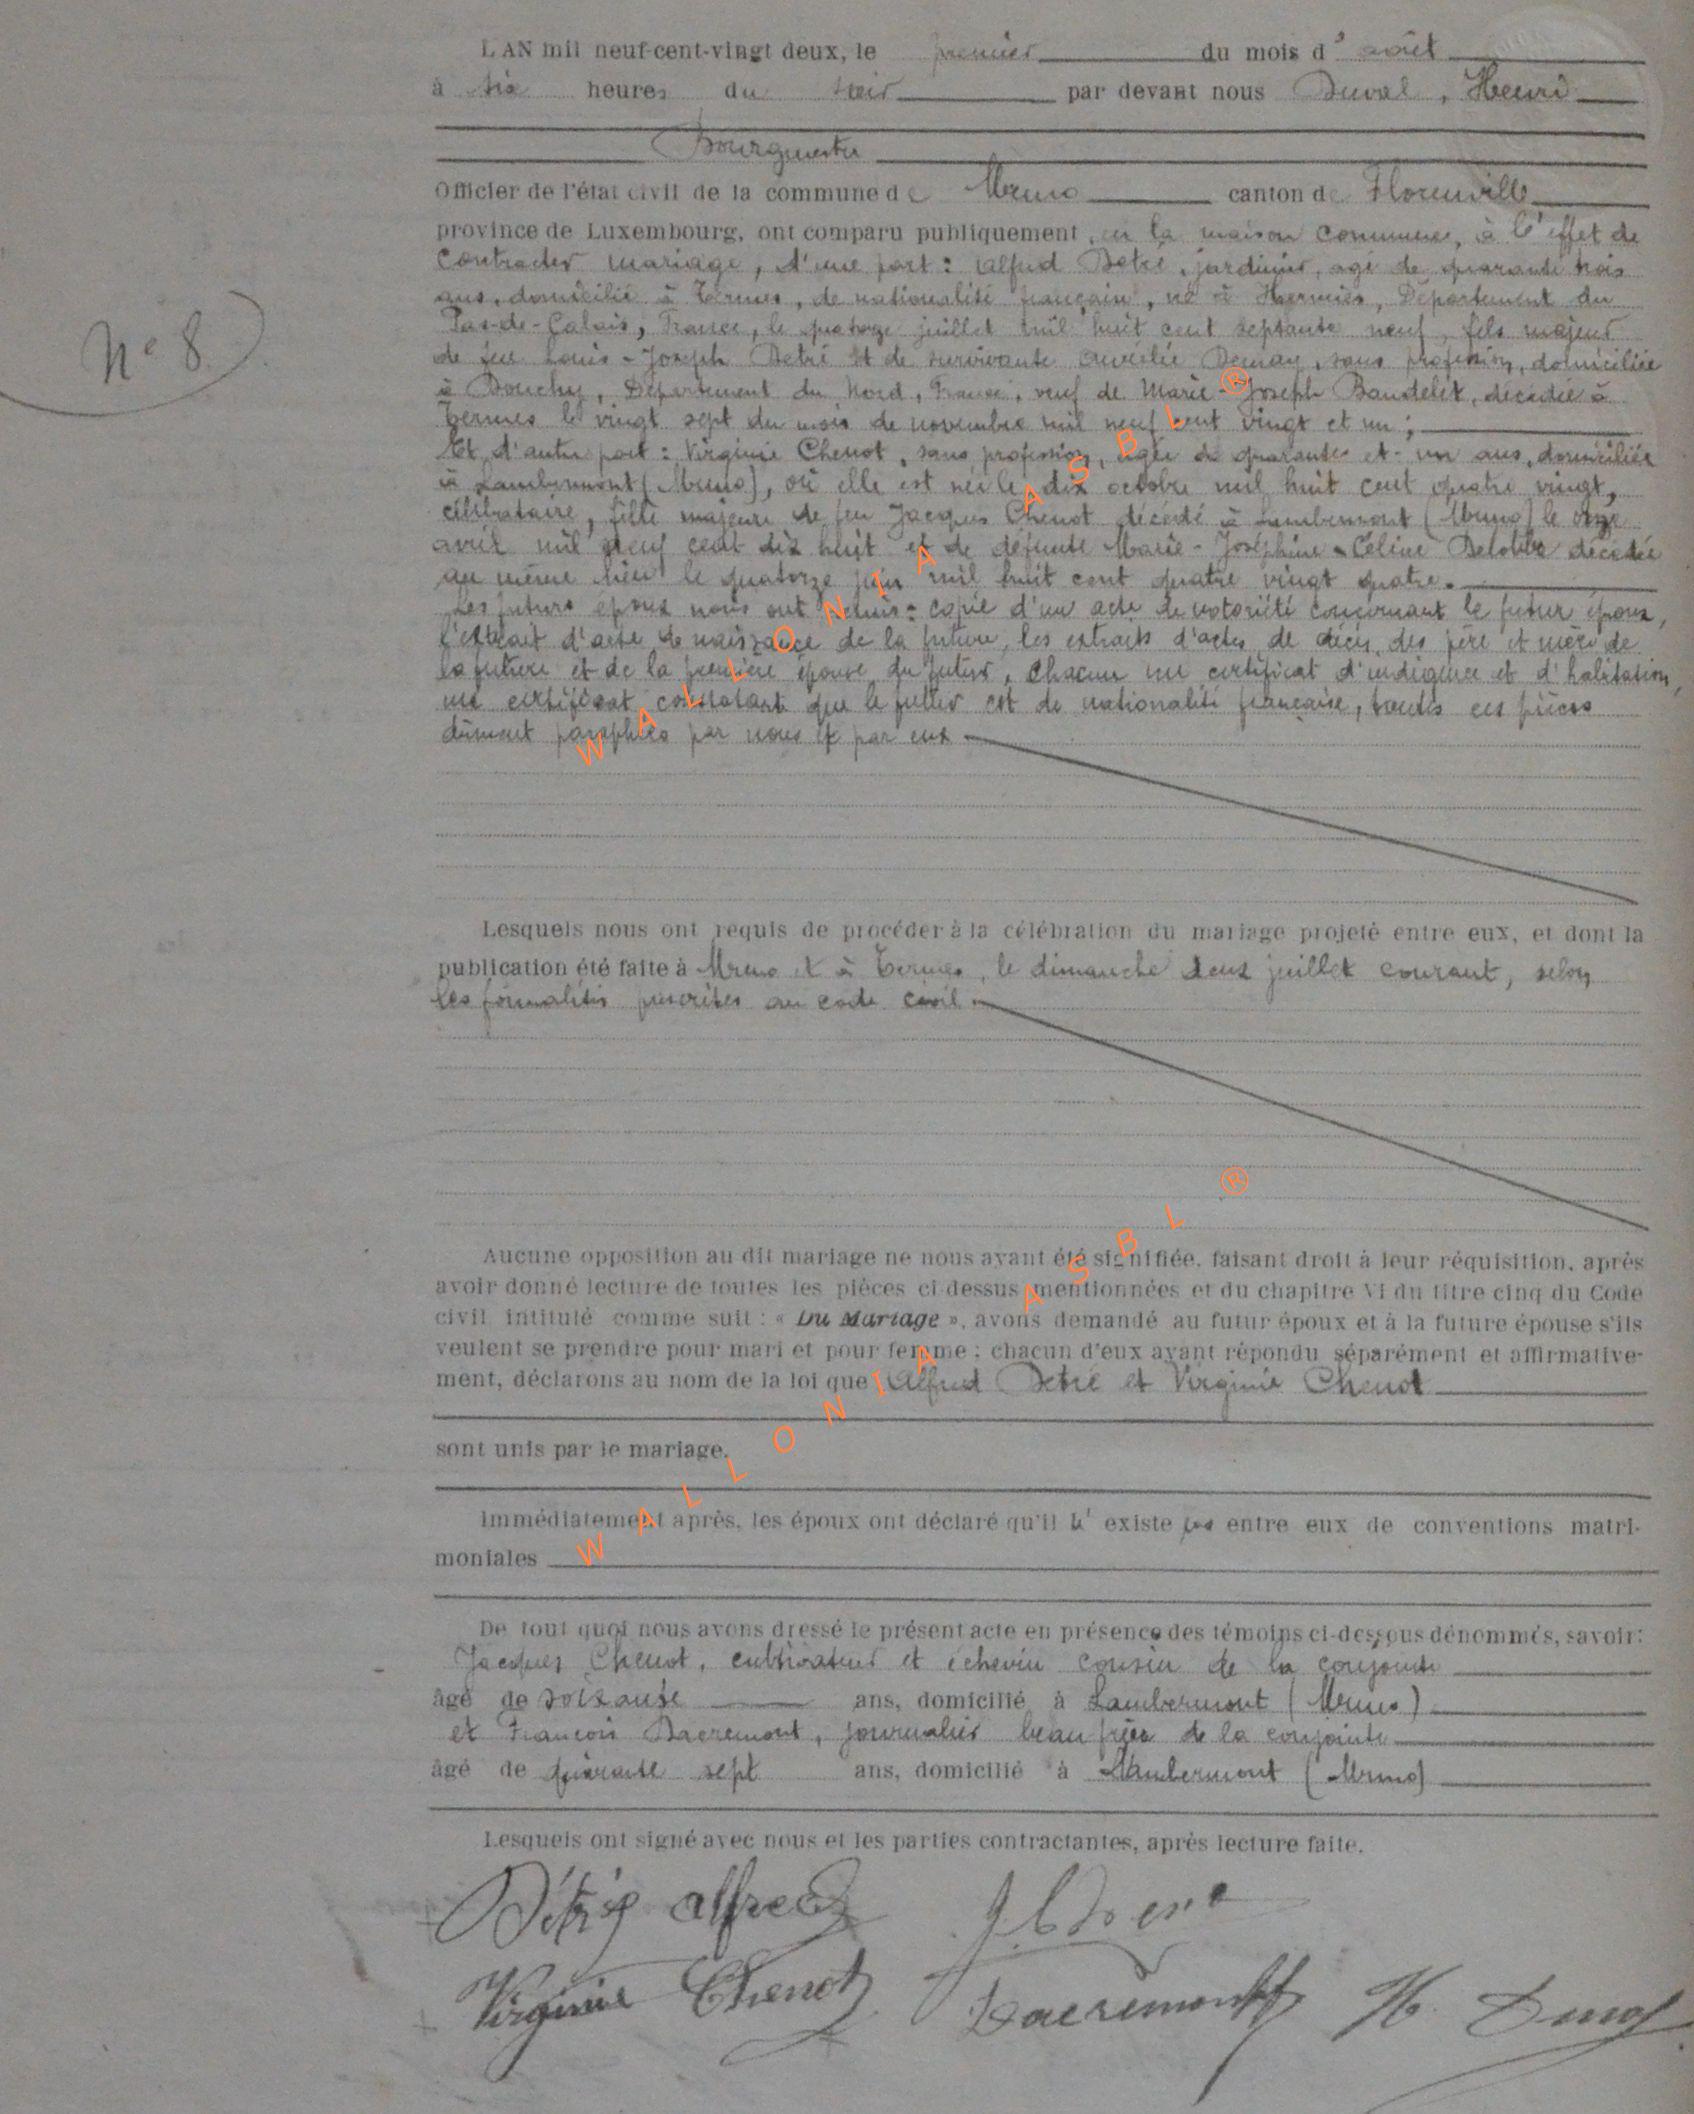 L'AN mil neuf-cent-vingt deux, le premier du mois d' août
à six heures du soir par devant nous Duval, Henri
Bourgmestre
Officier de l'état civil de la commune de Muno canton de Florenville
province de Luxembourg, ont comparu publiquement, en la maison commune, à l'effet de
contracter mariage, d'une part : Alfred Detrié, jardinier, agé de quarante trois
ans, domicilié à Termes, de nationalité française, né à Hermies, Département du
Pas-de-Calais, France, le quatorze juillet mil huit cent septante neuf, fils majeur
N° 8.
de feu Louis-Joseph Detrié et de survivante Aurélie Demay, sans profession, domiciliée
à Douchy, Département du Nord, France, veuf de Marie-Joseph Baudelet, décédée à
Termes le vingt sept du mois de novembre mil neuf cent vingt et un ;
Et d'autre part : Virginie Chenot, sans profession, agée de quarante et un ans, domiciliée
à Lambermont (Muno), où elle est née le dix octobre mil huit cent quatre vingt,
célibataire, fille majeure de feu Jacques Chenot décédé à Lambermont (Muno) le onze
avril mil neuf cent dix huit et de défunte Marie-Joséphine-Céline décédée
au même lieu le quatorze juin mil huit cent quatre vingt quatre.
Les futurs époux nous ont remis : copie d'un acte de notoriété concernant le futur époux,
l'extrait d'acte de naissance de la future, les extraits d'actes de décès des père et mère de
la future et de la première épouse du futur, chacun un certificat d'indigence et d'habitation,
un certificat constatant que le futur est de nationalité française, toutes ces pièces
dûment paraphées par nous et par eux
Lesquels nous ont requis de procéder à la célébration du mariage projeté entre eux, et dont la
publication été faite à Muno et à Termes, le dimanche deux juillet courant, selon
les formalités prescrites au code civil.
Aucune opposition au dit mariage ne nous ayant été signifiée, faisant droit à leur réquisition, après
avoir donné lecture de toutes les pièces ci-dessus mentionnées et du chapitre VI du titre cinq du Code
civil intitulé comme suit : « Du Mariage », avons demandé au futur époux et à la future épouse s'ils
veulent se prendre pour mari et pour femme : chacun d'eux ayant répondu séparément et affirmative-
ment, déclarons au nom de la loi que Alfred Detrié et Virginie Chenot
sont unis par le mariage.
Immédiatement après, les époux ont déclaré qu'il n' existe pas entre eux de conventions matri-
moniales
De tout quoi nous avons dressé le présent acte en présence des témoins ci-dessous dénommés, savoir:
Jacques Chenot, cultivateur et échevin cousin de la conjointe
âgé de soixante ans, domicilié à Lambermont (Muno)
et François Dacremont, journalier beau frère de la conjointe
âgé de quarante sept ans, domicilié à Lambermont (Muno)
Lesquels ont signé avec nous et les parties contractantes, après lecture faite.
Détrié Alfred
Virginie Chenot Dacremont H. Duval
WALLONIA ASBL ®
WALLONIA ASBL ®